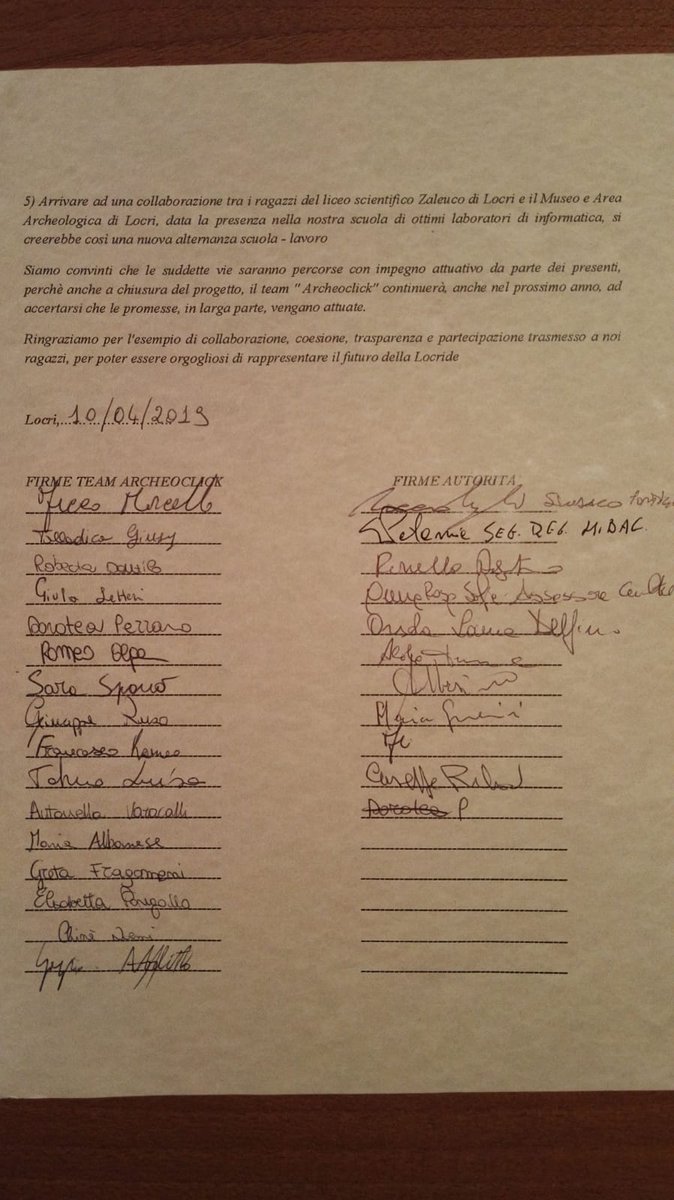 5) Arrivare ad una collaborazione tra i ragazzi del liceo scientifico Zaleuco di Locri e il Museo e Area
Archeologica di Locri, data la presenza nella nostra scuola di ottimi laboratori di informatica, si
creerebbe così una nuova alternanza scuola - lavoro
Siamo convinti che le suddette vie saranno percorse con impegno attuativo da parte dei presenti,
perchè anche a chiusura del progetto, il team "Archeoclick" continuerà, anche nel prossimo anno, ad
accertarsi che le promesse, in larga parte, vengano attuate.
Ringraziamo per l'esempio di collaborazione, coesione, trasparenza e partecipazione trasmesso a noi
ragazzi, per poter essere orgogliosi di rappresentare il futuro della Locride
Locri,...10/04/2019
FIRME TEAM ARCHEOCLICK
Giusy
Roberta
Giulia
Dorotea Perrano
Romeo
Sara Spanò
Giuseppe Russo
Francesco Romeo
Luisa
Antonella Varacalli
Maria Albanese
Greta Fragomeni
Elisabetta
FIRME AUTORITÀ
SEG. REG. MIBAC.
Assessore
Maria
Dorotea P